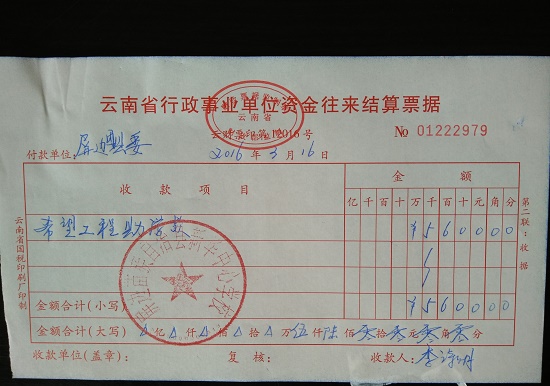 云南省行政事业单位资金往来结算票据
云南省
云财票印第12016号
No 01222979
付款单位：屏边县委
2016年3月16日
收款项目
金额
亿 千 百 十 万 千 百 十 元 角 分
希望工程助学款
¥ 5 6 0 0 0 0
金额合计(小写)
¥ 5 6 0 0 0 0
金额合计(大写) 亿 仟 佰 拾 万 伍 仟 陆 佰 零 拾 零 元 零 角 零 分
收款单位(盖章)：
复核：
收款人：
云南省国税印刷厂印制
第二联：收据